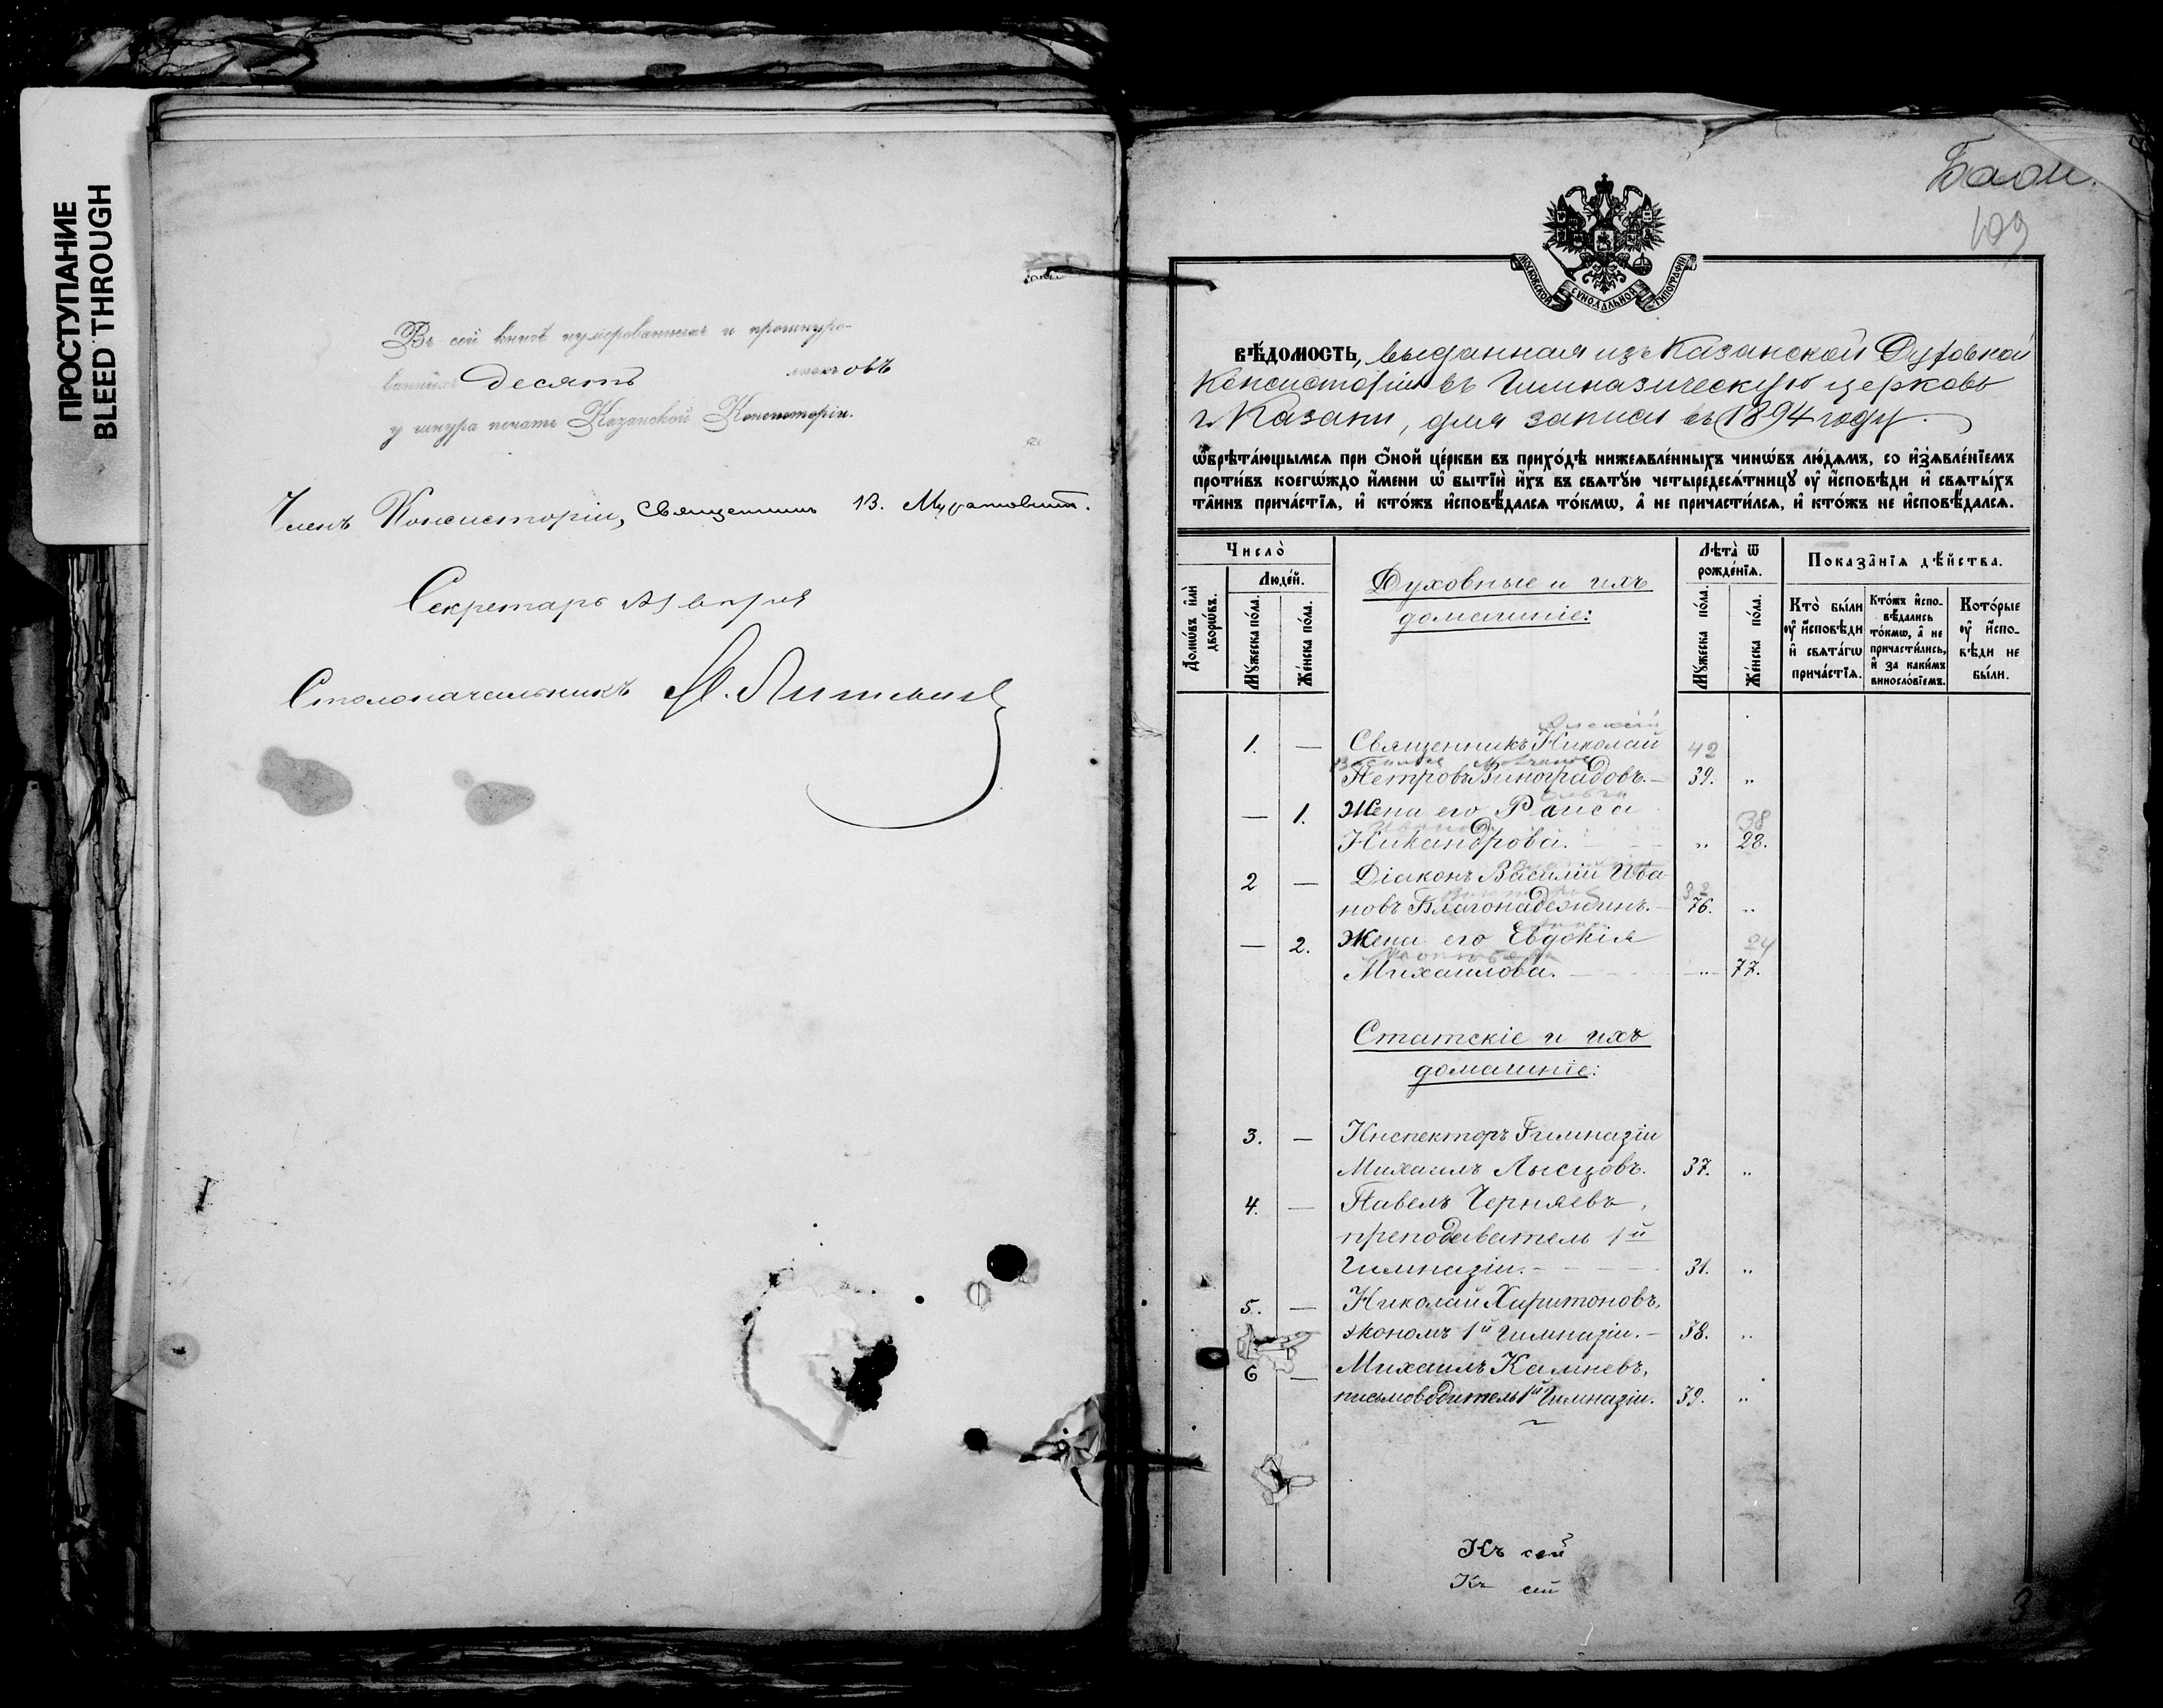 ПРОСТУПАНИЕ
BLEED THROUGH
Въ сей книгѣ нумерованныхъ и прошнуро-
ванныхъ десять листовъ
у шнура печать Казанской Консисторіи.
Членъ Консисторіи, Священникъ В.
Секретарь
Столоначальникъ
109
МОСКОВСКОЙ СѴНОДАЛЬНОЙ ТИПОГРАФІИ
ВѢДОМОСТЬ, выданная изъ Казанской Духовной
Консисторіи въ Гимназическую церковь
г. Казани, для записи въ 1894 году.
Ѡбрѣта́ющымсѧ при о҆́ной це́ркви въ прихо́дѣ нижеѧвле́нныхъ чинѡ́въ лю́демъ, со и҆з̾ѧвле́нїемъ
проти́въ коегѡ́ждо и҆́мени ѡ҆ бытїѝ и҆́хъ въ свѧту́ю четыредесѧ́тницу ᲂу҆ и҆́сповѣди и҆ свѧты́хъ
та̑инъ прича́стїѧ, и҆ кто́жъ и҆сповѣ́далсѧ то́кмѡ, а҆ не причасти́лсѧ, и҆ кто́жъ не и҆сповѣ́далсѧ.
Число̀
Домѡ́въ и҆лѝ дворѡ́въ.
Люде́й.
Мꙋ́жеска по́ла.
Же́нска по́ла.
Духовные и ихъ
домашніе:
Лѣта̀ ѿ рожде́нїѧ.
Мꙋ́жеска по́ла.
Же́нска по́ла.
Показа̑нїѧ дѣ́йства.
Кто̀ бы́ли ᲂу҆ и҆́сповѣди и҆ свѧта́гѡ прича́стїѧ.
Кто́жъ и҆сповѣ́дались то́кмѡ, а҆ не причасти́лись, и҆ за каки́мъ винослѡ́вїемъ.
Кото́рые ᲂу҆ и҆́сповѣди не бы́ли.
1. — Священникъ Николай 42
Петровъ Виноградовъ. — 39. „
— 1. Жена его Раиса 38
Никандрова. „ 28.
2 — Діаконъ Василій Ива
новъ Благонадеждинъ. — 76. „
— 2. Жена его Евдокія 24
Михаилова. — „ 77.
Статскіе и ихъ
домашніе:
3. — Инспекторъ Гимназіи
Михаилъ Лысцовъ. 37. „
4. — Павелъ Черняевъ,
преподаватель 1й
Гимназіи. — 31. „
5. — Николай Харитоновъ,
экономъ 1й Гимназіи. — 38. „
6 — Михаилъ Камневъ,
письмоводитель 1й Гимназіи. 39. „
Къ сей
Къ сей
3